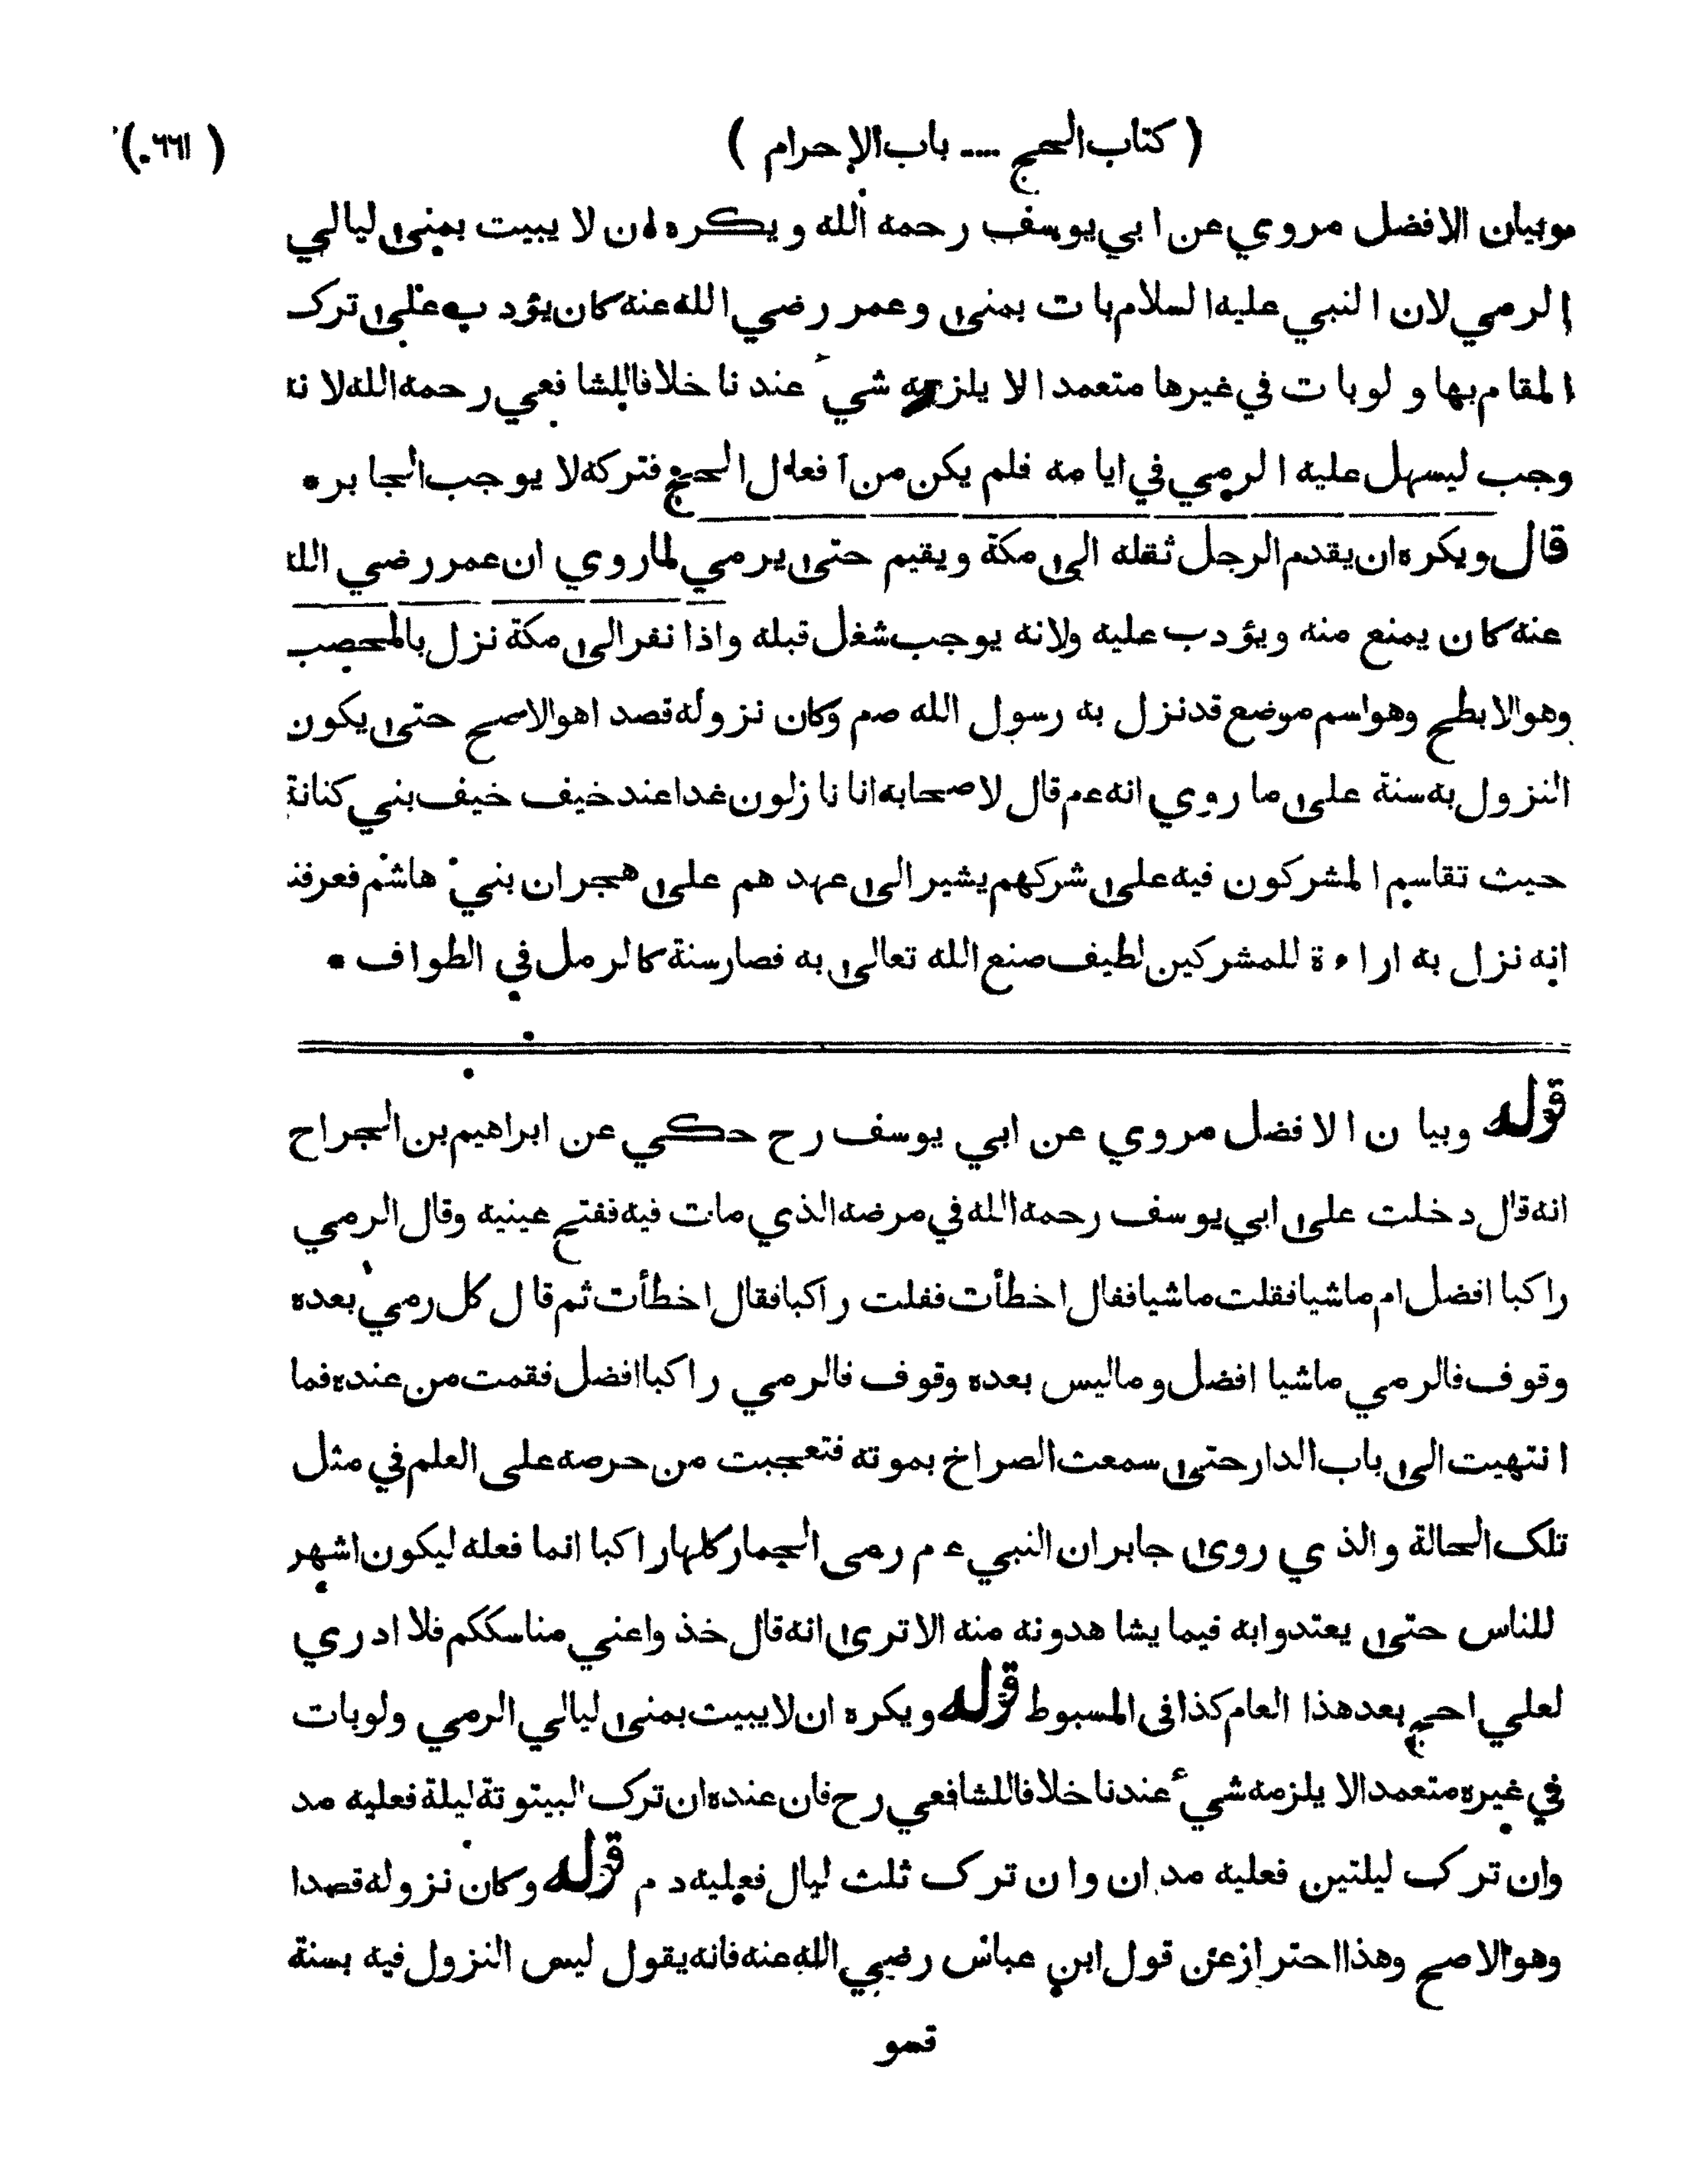 ( كتاب الحج .... باب الإحرام )
وبيان الافضل مروي عن ابي يوسف رحمه الله ويكره ان لا يبيت بمنى ليالي
الرمي لان النبي عليه السلام بات بمنى وعمر رضي الله عنه كان يؤدب على ترك
المقام بها ولو بات في غيرها متعمدا لا يلزمه شيء عندنا خلافا للشافعي رحمه الله لانه
وجب ليسهل عليه الرمي في ايامه فلم يكن من أفعال الحج فتركه لا يوجب الجابر *
قال ويكره ان يقدم الرجل ثقله الى مكة ويقيم حتى يرمي لما روي ان عمر رضي الله
عنه كان يمنع منه ويؤدب عليه ولانه يوجب شغل قبله واذا نفر الى مكة نزل بالمحصب
وهو الابطح وهو اسم موضع قد نزل به رسول الله صم وكان نزوله قصدا هو الاصح حتى يكون
النزول به سنة على ما روي انه عم قال لاصحابه انا نازلون غدا عند خيف خيف بني كنانة
حيث تقاسم المشركون فيه على شركهم يشير الى عهدهم على هجران بني هاشم فعرفنا
انه نزل به اراءة للمشركين لطيف صنع الله تعالى به فصار سنة كالرمل في الطواف *
قوله وبيان الافضل مروي عن ابي يوسف رح حكي عن ابراهيم بن الجراح
انه قال دخلت على ابي يوسف رحمه الله في مرضه الذي مات فيه ففتح عينيه وقال الرمي
راكبا افضل ام ماشيا فقلت ماشيا فقال اخطأت فقلت راكبا فقال اخطأت ثم قال كل رمي بعده
وقوف فالرمي ماشيا افضل وما ليس بعده وقوف فالرمي راكبا افضل فقمت من عنده فما
انتهيت الى باب الدار حتى سمعت الصراخ بموته فتعجبت من حرصه على العلم في مثل
تلك الحالة والذي روى جابر ان النبي عم رمى الجمار كلها راكبا انما فعله ليكون اشهر
للناس حتى يعتدوا به فيما يشاهدونه منه الا ترى انه قال خذوا عني مناسككم فلا ادري
لعلي احج بعد هذا العام كذا فى المسبوط قوله ويكره ان لا يبيت بمنى ليالي الرمي ولو بات
في غيره متعمدا لا يلزمه شيء عندنا خلافا للشافعي رح فان عنده ان ترك البيتوتة ليلة فعليه مد
وان ترك ليلتين فعليه مدان وان ترك ثلث ليال فعليه دم قوله وكان نزوله قصدا
وهو الاصح وهذا احتراز عن قول ابن عباس رضي الله عنه فانه يقول ليس النزول فيه بسنة